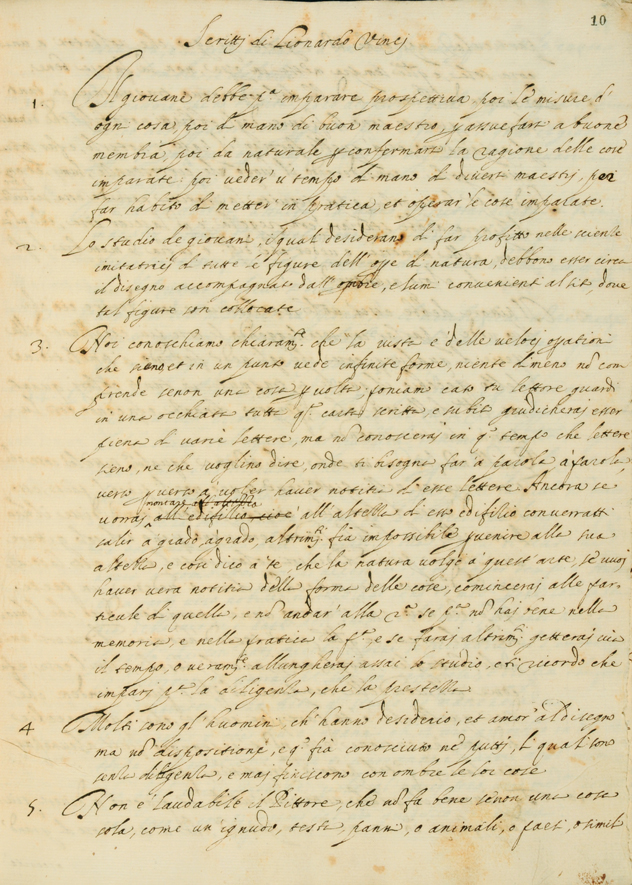 10
Scritti di Lionardo Vincj
1. Il giovane debbe pª imparare prospettiva, poi le misure d'
ogni cosa, poi di mano di buon maestro, p assuefarsi a buone
membra, poi da naturale p confermarsi la ragione delle cose
imparate: poi veder' u' tempo di mano di diversi maestrj, poi
far habito di metter' in pratica, et operar' le cose imparate.
2. Lo studio de giovani, i qual' desiderano di far profitto nelle scientie
imitatricj di tutte le figure dell' opere di natura, debbono esser circa
il disegno accompagnato dall' ombre, e lumi convenienti al sito, dove
tal figure son collocate
3. Noi conoschiamo chiaramte. che la vista è delle velocj operationi
che sieno, et in un punto vede infinite forme, niente di meno nō com
prende senon una cosa p volta, poniam caso tu lettore guardi
in una occhiata tutta qª. carta scritta, e subito giudicheraj esser
piena di varie lettere, ma nō conosceraj in qº. tempo che lettere
sieno, ne che voglino dire, onde ti bisogna far' a parola à parola,
verso p verso à voler haver notitia di esse lettere Ancora se
montare
vorraj all' altezza di esso edifitio converratti
salir à grado, a grado, altrimtj. fia impossibile pvenire alla sua
altezza, e così dico à te, che la natura volge à quest' arte, se vuoj
haver vera notitia della forma delle cose, comincieraj alle par-
ticule di quella, e nō andar' alla 2ª. se pª. nō haj bene nella
memoria, e nella pratica la pª., e se faraj altrimtj. getteraj via
il tempo, o veramte. allungheraj assai lo studio, e ti ricordo che
imparj pª. la diligenza, che la prestezza
4 Molti sono gl' huomini, ch' hanno desiderio, et amor' al disegno
ma nō dispositione, e qº. fia conosciuto ne' putti, li qual' son
senza diligenza, e maj finiscono con ombre le lor cose
5. Non è laudabile il Pittore, che nō fa bene senon una cosa
sola, come un' ignudo, testa, panni, o animali, o paesi, o simili